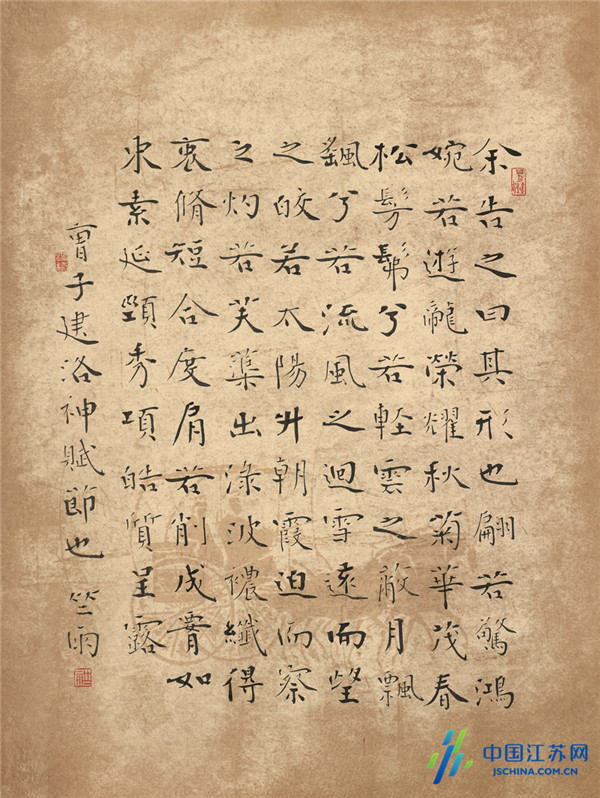 余告之曰其形也翩若驚鴻
婉若遊龍榮耀秋菊華茂春
松髣髴兮若輕雲之蔽月飄
颻兮若流風之迴雪遠而望
之皎若太陽升朝霞迫而察
之灼若芙蕖出淥波襛纖得
衷脩短合度肩若削成腰如
束素延頸秀項皓質呈露
曹子建洛神賦節也 竺雨
中国江苏网
JSCHINA.COM.CN